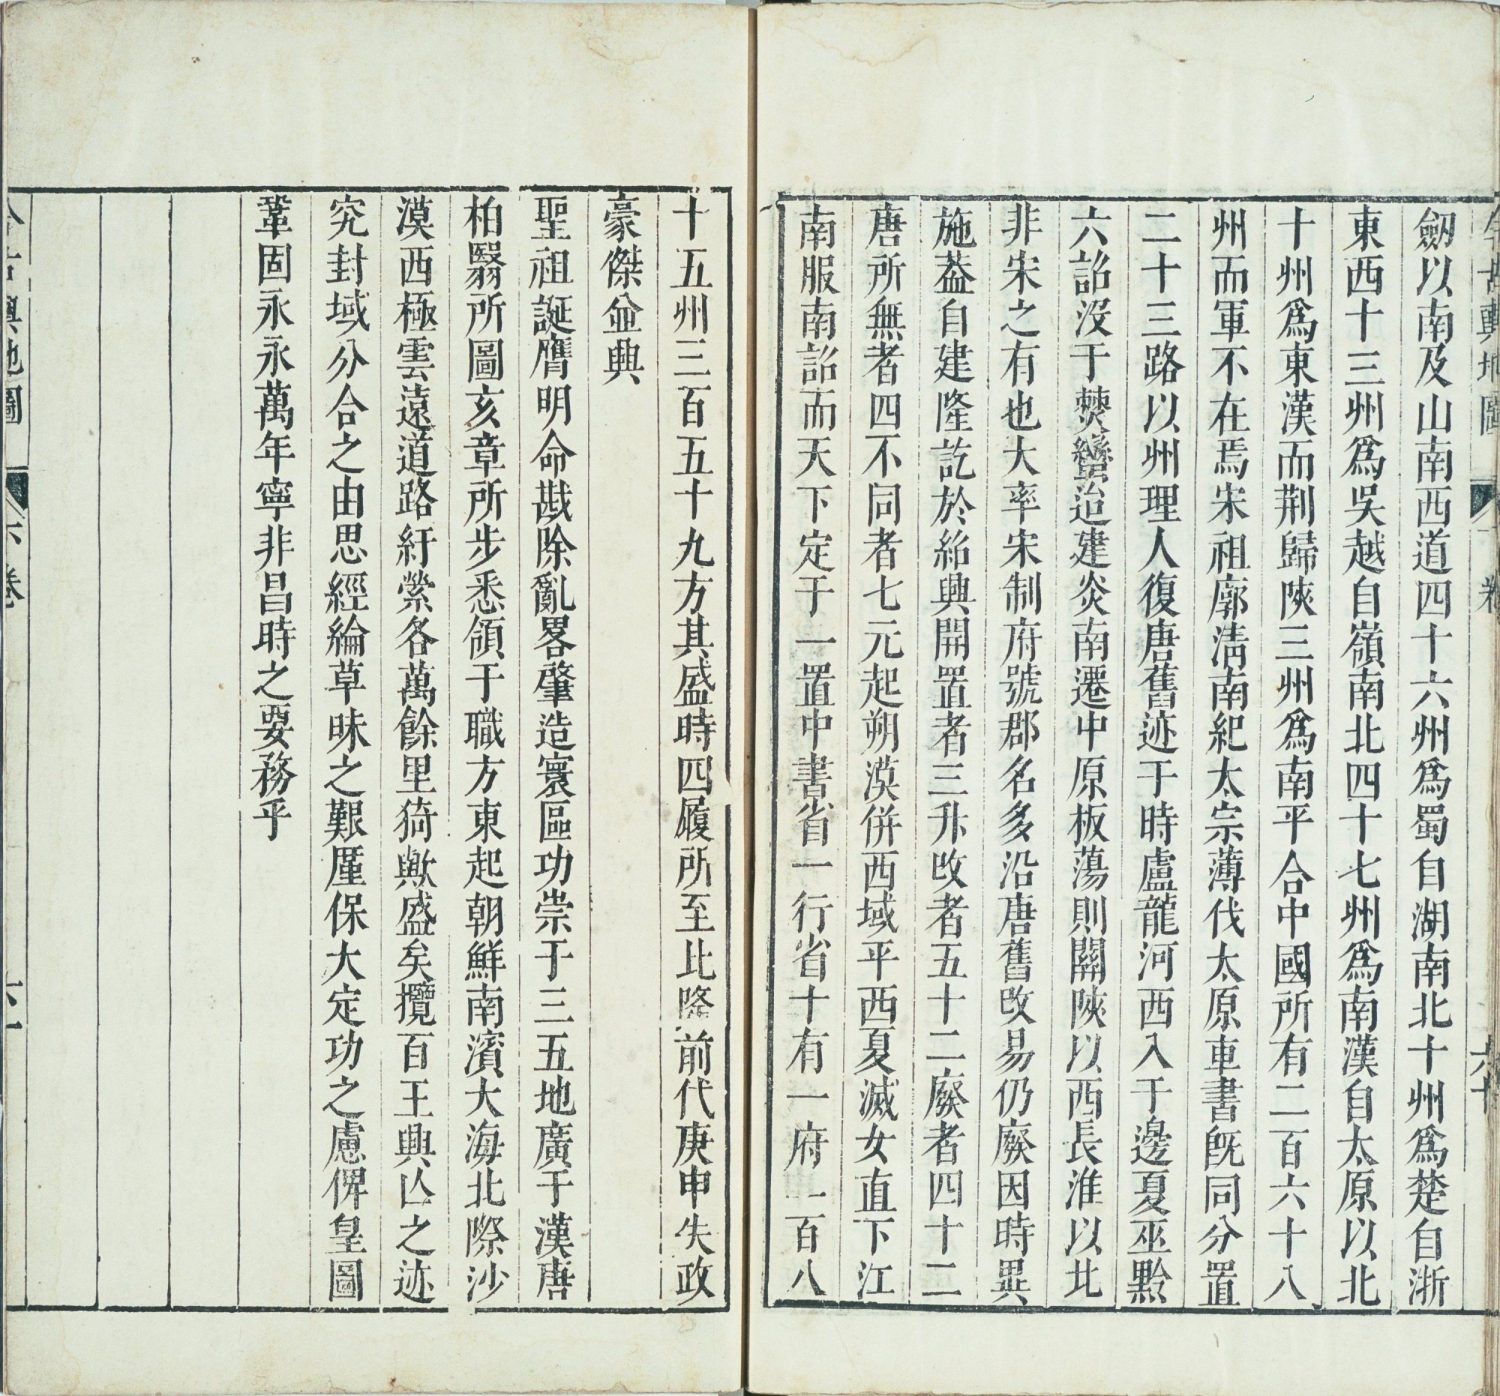 今古輿地圖 下卷 六十
劒以南及山南西道四十六州爲蜀自湖南北十州爲楚自浙
東西十三州爲吳越自嶺南北四十七州爲南漢自太原以北
十州爲東漢而荆歸陜三州爲南平合中國所有二百六十八
州而軍不在焉宋祖廓淸南紀太宗薄伐太原車書旣同分置
二十三路以州理人復唐舊迹于時盧龍河西入于邊夏巫黔
六詔沒于僰蠻迨建炎南遷中原板蕩則關陜以西長淮以北
非宋之有也大率宋制府號郡名多沿唐舊改易仍廢因時異
施葢自建隆訖於紹興開置者三升改者五十二廢者四十二
唐所無者四不同者七元起朔漠併西域平西夏滅女直下江
南服南詔而天下定于一置中書省一行省十有一府一百八
十五州三百五十九方其盛時四履所至比隆前代庚申失政
豪傑並興
聖祖誕膺明命戡除亂畧肇造寰區功崇于三五地廣于漢唐
柏翳所圖亥章所步悉領于職方東起朝鮮南濱大海北際沙
漠西極雲遠道路紆縈各萬餘里猗歟盛矣攬百王興亾之迹
究封域分合之由思經綸草昧之艱厪保大定功之慮俾皇圖
鞏固永永萬年寧非昌時之要務乎
今古輿地圖 下卷 六十一